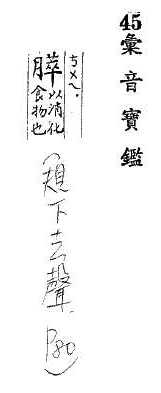 45彙音寶鑑
ㄘㄨㄟˋ
膵以消化
食物也
(規下去聲 P80)